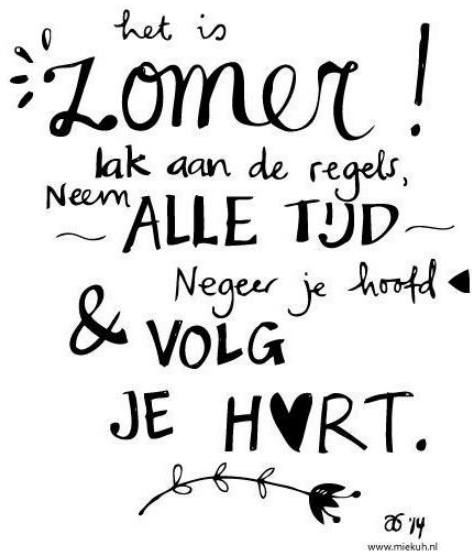 het is
zomer!
lak aan de regels,
Neem
~ ALLE TIJD ~
Negeer je hoofd
& VOLG
JE H♥RT.
'14
www.miekuh.nl